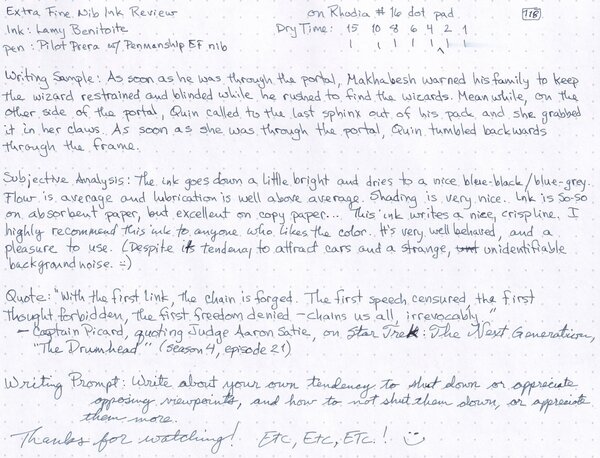 Extra Fine Nib Ink Review on Rhodia #16 dot pad. 118
Ink: Lamy Benitoite Dry Time: 15 10 8 6 4 2 1
pen: Pilot Prera w/ Penmanship EF nib
Writing Sample: As soon as he was through the portal, Makhabesh warned his family to keep
the wizard restrained and blinded while he rushed to find the wizards. Meanwhile, on the
other side of the portal, Quin called to the last sphinx out of his pack and she grabbed
it in her claws. As soon as she was through the portal, Quin tumbled backwards
through the frame.
Subjective Analysis: The ink goes down a little bright and dries to a nice blue-black/blue-grey.
Flow is average and lubrication is well above average. Shading is very nice. Ink is so-so
on absorbent paper, but excellent on copy paper... This ink writes a nice, crisp line. I
highly recommend this ink to anyone who likes the color. It's very well behaved, and a
pleasure to use. (Despite its tendency to attract cars and a strange, unidentifiable
background noise. :)
Quote: "With the first link, the chain is forged. The first speech censured, the first
thought forbidden, the first freedom denied - chains us all, irrevocably."
- Captain Picard, quoting Judge Aaron Satie, on Star Trek: The Next Generation,
"The Drumhead" (season 4, episode 21)
Writing Prompt: Write about your own tendency to shut down or appreciate
opposing viewpoints, and how to not shut them down, or appreciate
them more.
Thanks for watching! Etc, Etc, Etc.! :)